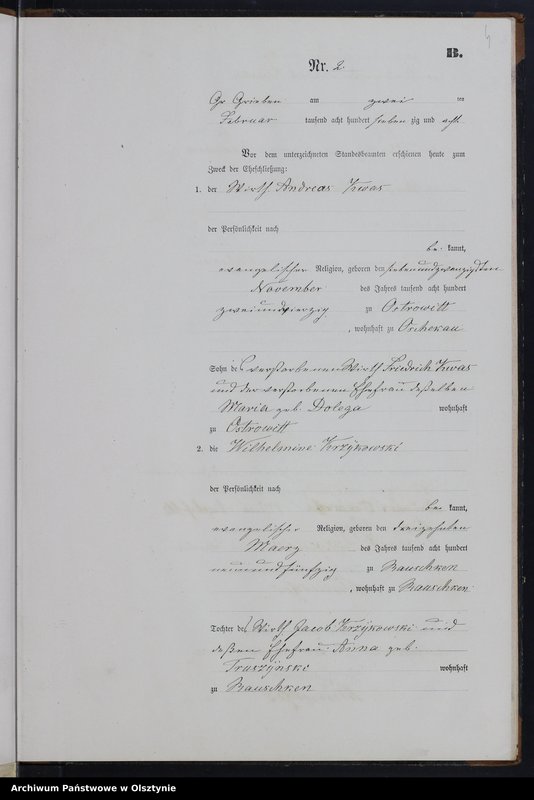 4
B.
Nr. 2
Gr Grieben am zwei ten
Februar tausend acht hundert sieben zig und acht
Vor dem unterzeichneten Standesbeamten erschienen heute zum
Zweck der Eheschließung:
1. der Wirth Andreas Kwas
der Persönlichkeit nach
be kannt,
evangelischer Religion, geboren den siebenundzwanzigsten
November des Jahres tausend acht hundert
zweiundvierzig zu Ostrowitt
, wohnhaft zu Orchekau
Sohn des verstorbenen Wirth Friedrich Kwas
und der verstorbenen Ehefrau deßelben
Maria geb. Dolega wohnhaft
zu Ostrowitt
2. die Wilhelmine Krzykowski
der Persönlichkeit nach
be kannt,
evangelischer Religion, geboren den dreizehnten
Maerz des Jahres tausend acht hundert
neunundfünfzig zu Rauschken
, wohnhaft zu Rauschken
Tochter des Wirth Jacob Krzykowski und
deßen Ehefrau Anna geb.
Truszynski wohnhaft
zu Rauschken
Archiwum Państwowe w Olsztynie